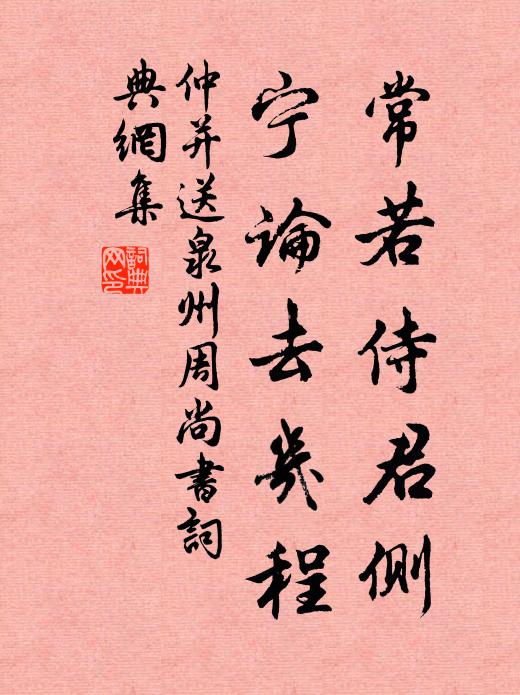 常若侍君侧
宁論去幾程
仲并送泉州周尚書詞
典網集
詞典
网印